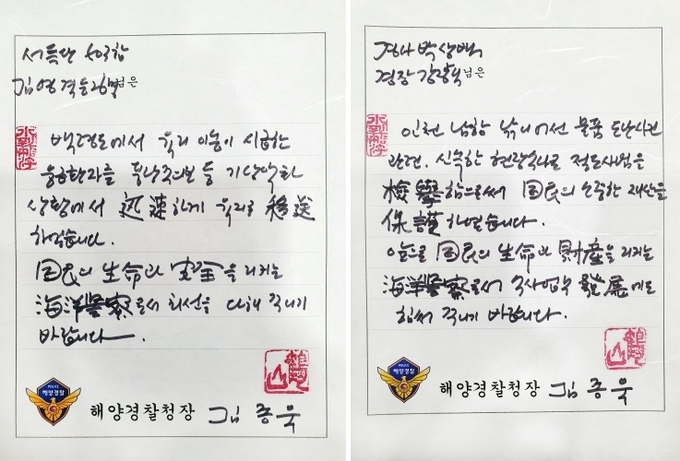 서특단
님은
백령도에서 육지 이송이 시급한
응급환자를 풍랑주의보 등 기상악화
상황에서 迅速하게 육지로 移送
하였습니다.
国民의 生命과 安全을 지키는
海洋警察로서 최선을 다해 주시기
바랍니다.
POLICE
해양경찰
해양경찰청장 김종욱
경사 박상백
경장 님은
인천 남항 낚시어선 물품 도난사건
관련, 신속한 현장수사로 절도사범을
檢擧함으로써 国民의 소중한 재산을
保護하였습니다.
앞으로 国民의 生命과 財産을 지키는
海洋警察로서 수사업무 發展에도
힘써 주시기 바랍니다.
POLICE
해양경찰
해양경찰청장 김종욱